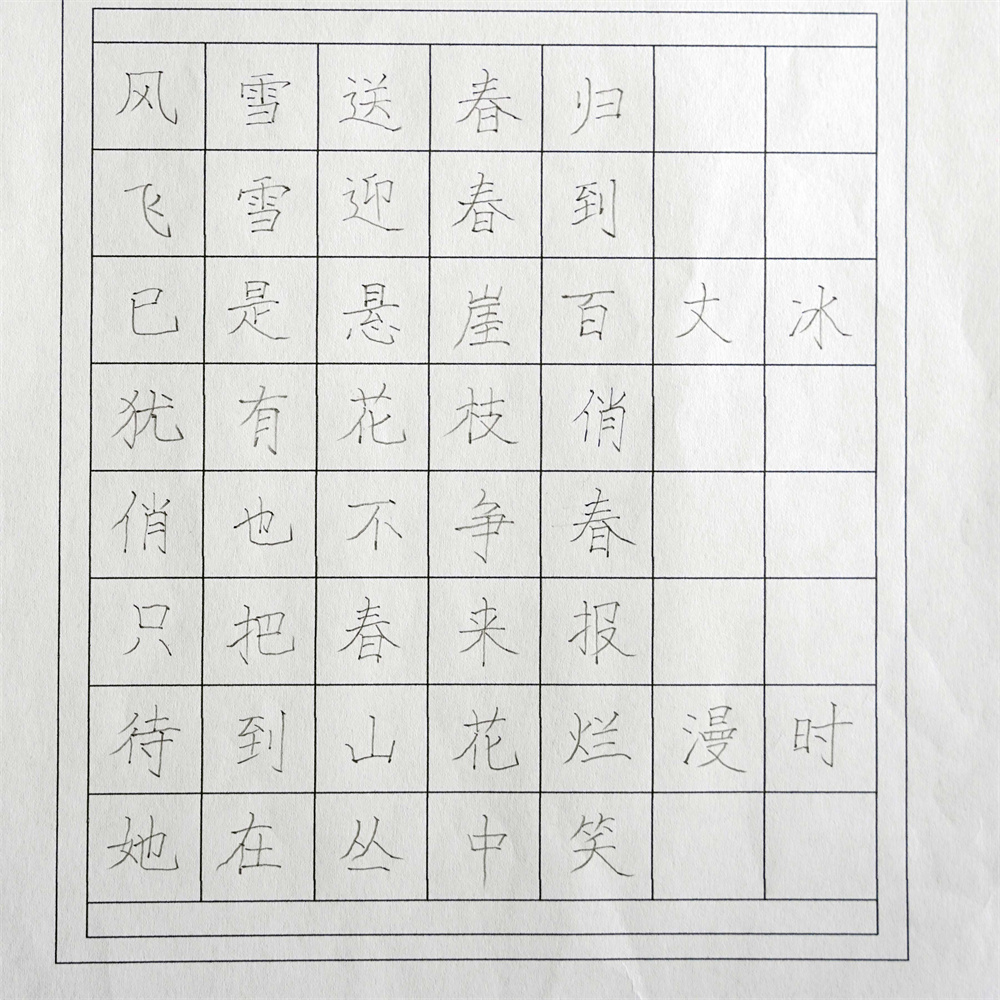 风雪送春归
飞雪迎春到
已是悬崖百丈冰
犹有花枝俏
俏也不争春
只把春来报
待到山花烂漫时
她在丛中笑